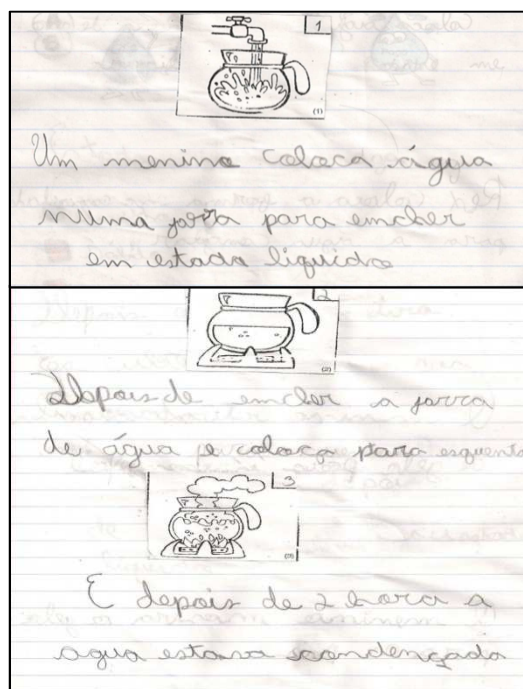 1
(1)
Um menino coloca água
numa jarra para emcher
em estado liquido
2
(2)
Depois de emcher a jarra
de água e coloca para esquenta
3
(3)
E depois de 2 hora a
agua estava condençada